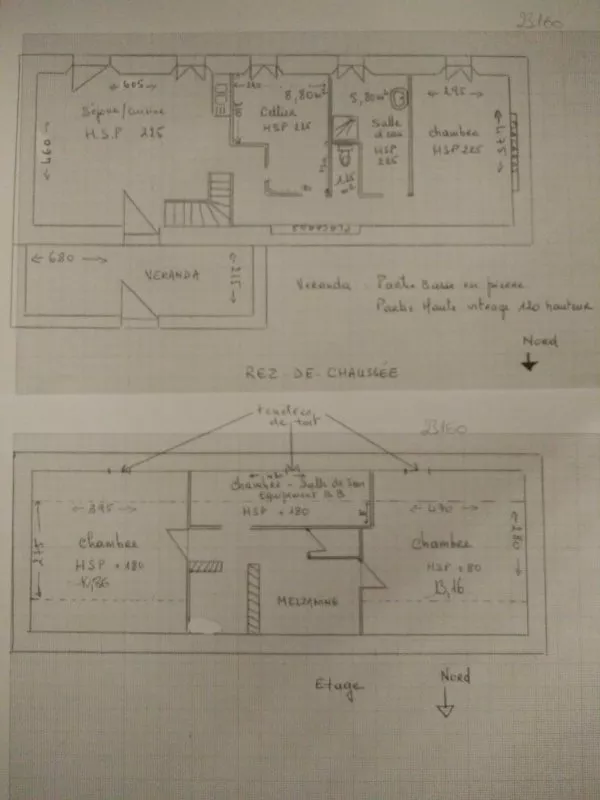 23160
← 605 →
Séjour/cuisine
H.S.P 225
← 460 →
8,80m²
Cellier
HSP 225
5,80m²
Salle
d'eau
HSP
225
← 295 →
chambre
HSP 225
← 475 →
PLACARDS
← 680 →
VERANDA
← 215 →
Veranda : Partie Basse en pierre
Partie Haute vitrage 120 hauteur
Nord
REZ-DE-CHAUSSÉE
23160
fenêtres
de toit
Chambre - Salle de Bain
HSP + 180
← 395 →
chambre
HSP + 180
10,86
MEZZANINE
← 470 →
Chambre
HSP + 80
13,16
← 280 →
Etage
Nord